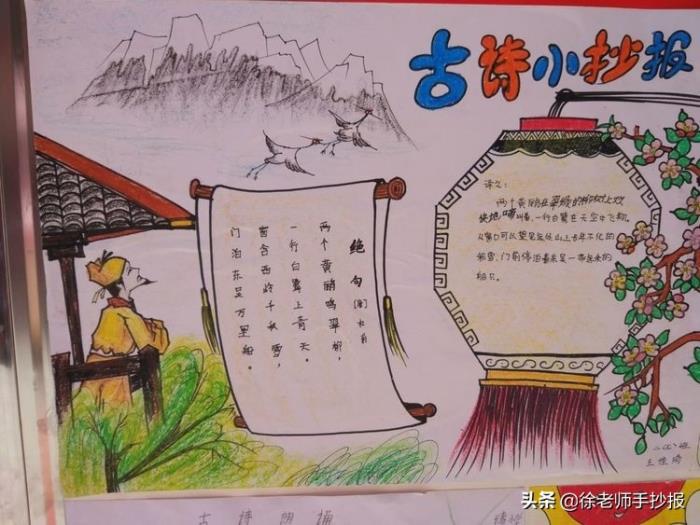 古诗小抄报
绝句 (唐) 杜甫
两个黄鹂鸣翠柳，
一行白鹭上青天。
窗含西岭千秋雪，
门泊东吴万里船。
译文：
两个黄鹂在翠绿的柳树上欢
快地啼叫着，一行白鹭在天空中飞翔，
从窗口可以望见远处山上千年不化的
积雪，门前停泊着来至一带远来的
船只。
二(八)班
古诗朗诵
头条 @徐老师手抄报